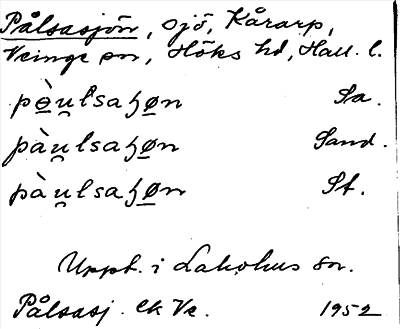 Pålsasjön, sjö, Kårarp,
Veinge sn, Höks hd, Hall. l.
pə̀u̯lsaɧøn Sa.
pàu̯lsaɧøn Sand.
pàu̯lsaɧøn St.
Uppt. i Laholms sn.
Pålsasj. ek Ve. 1952